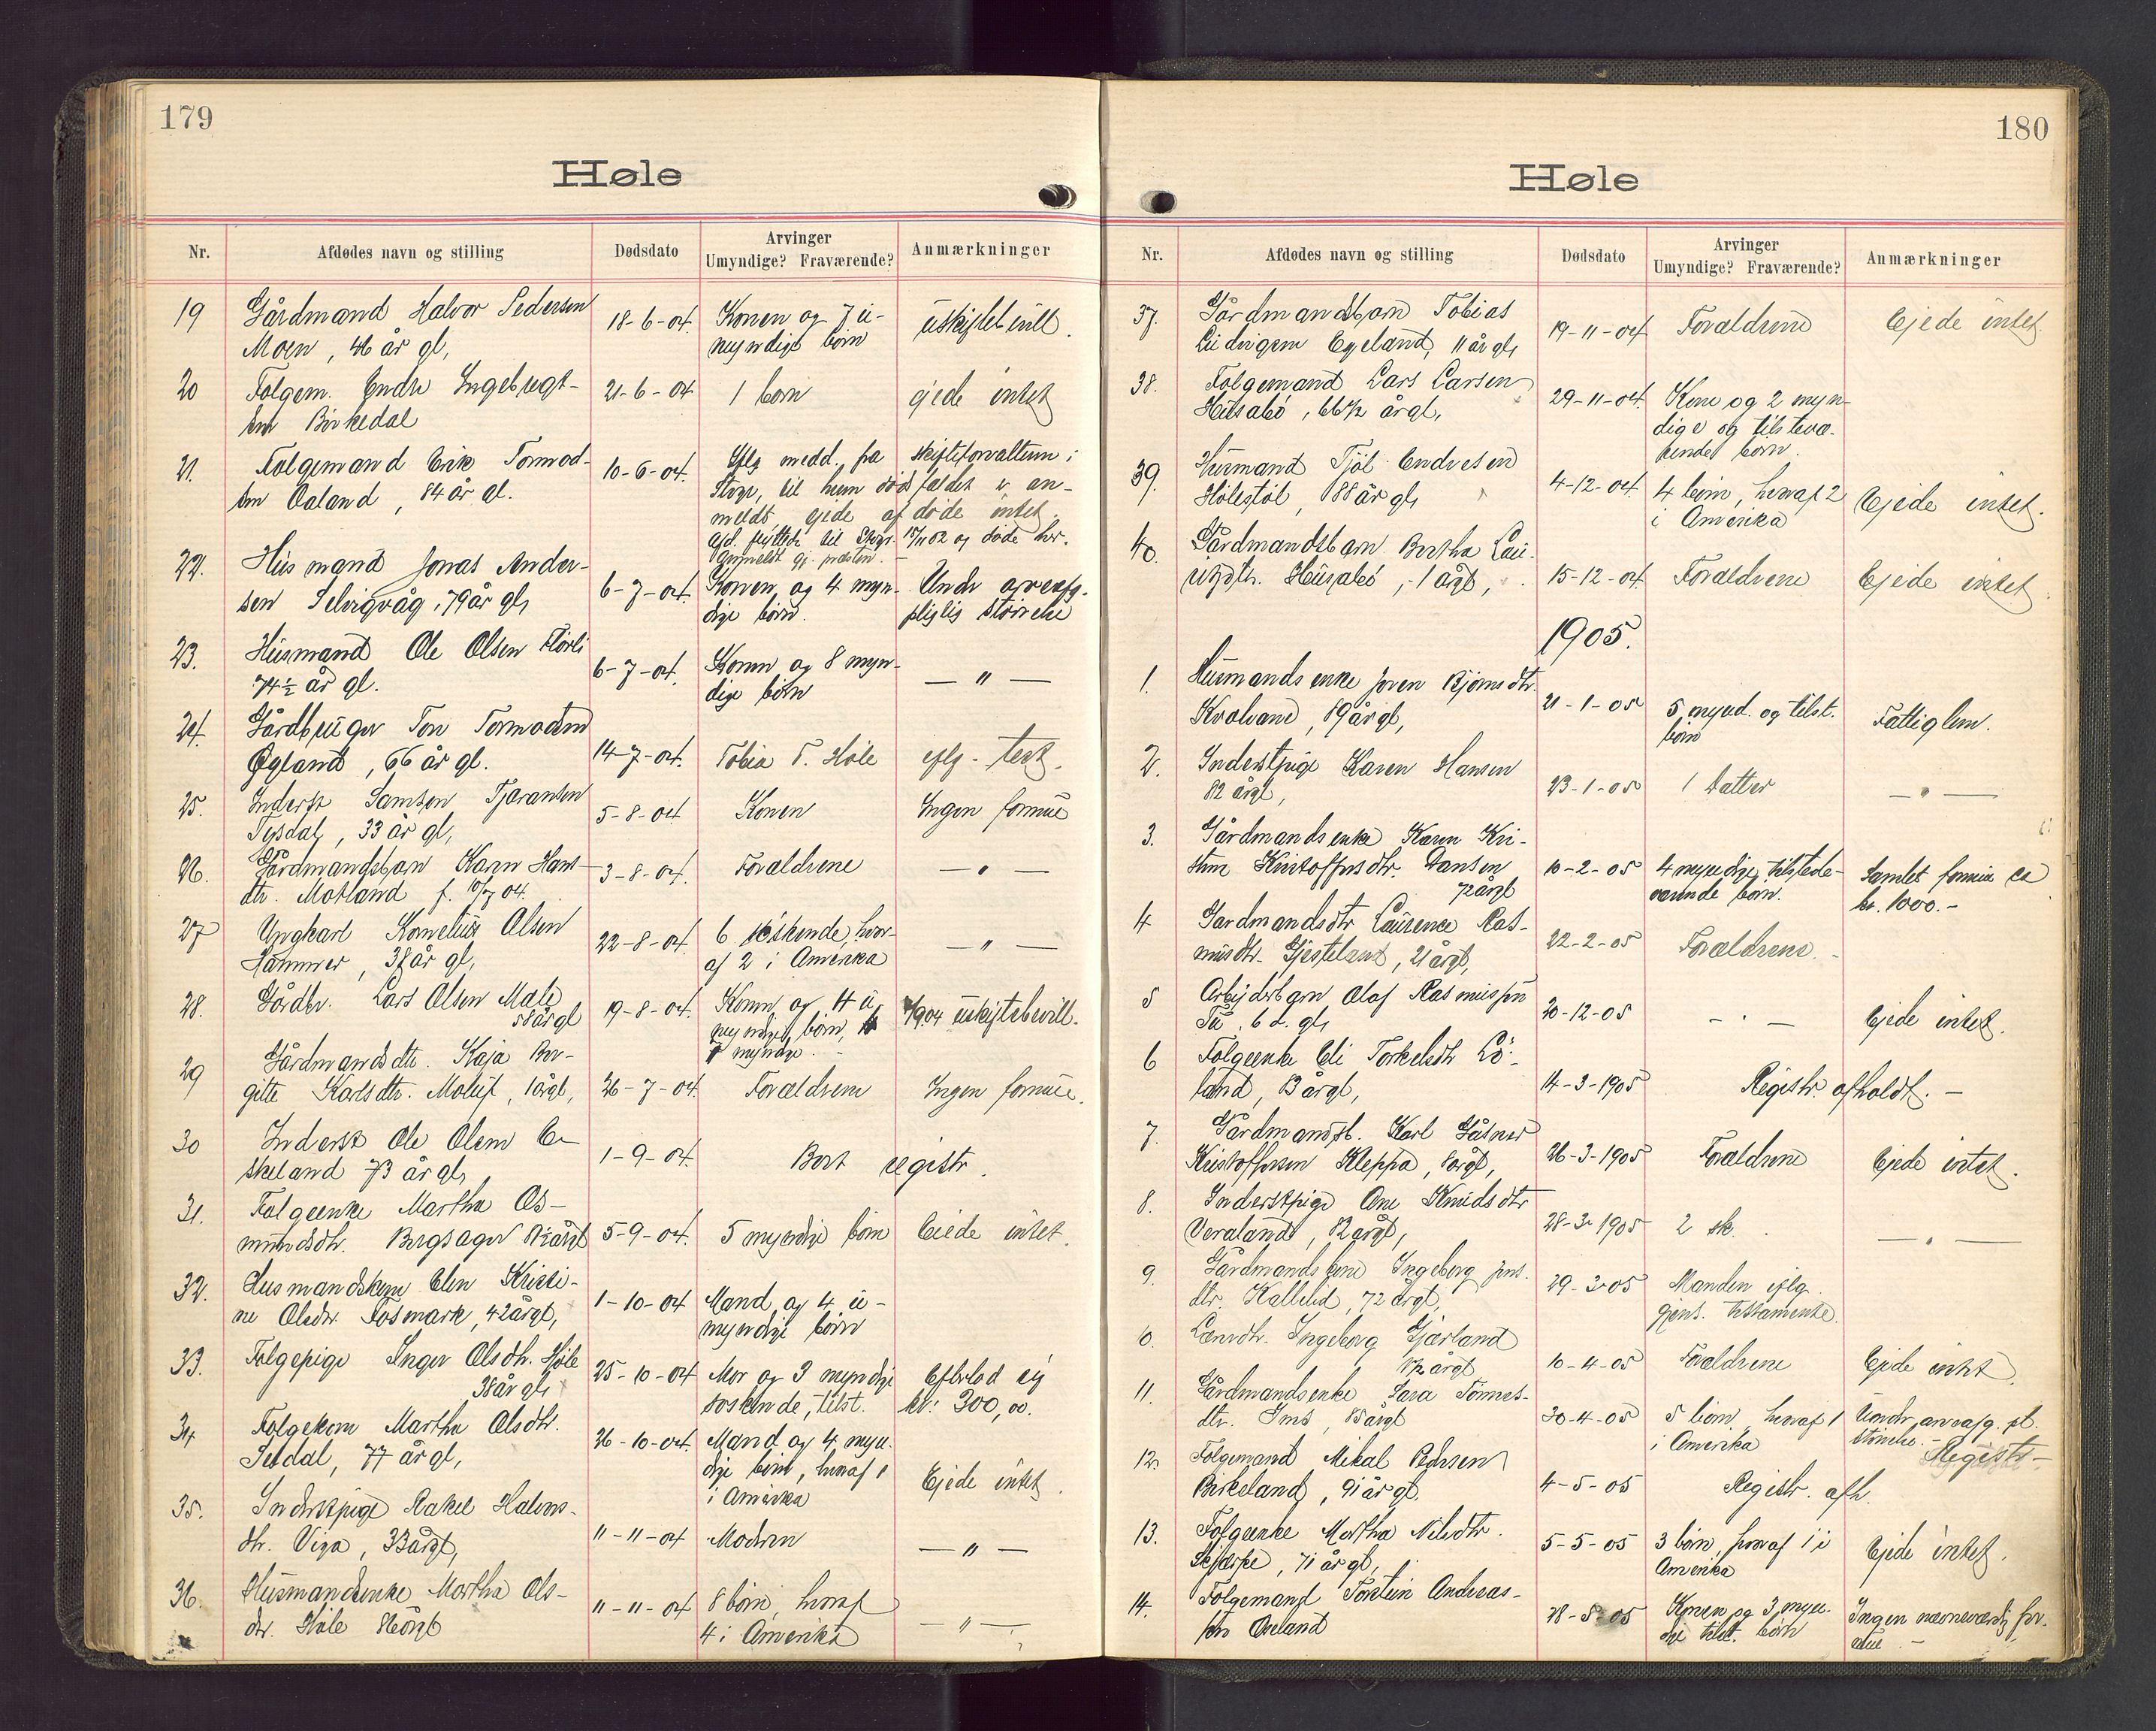 179
Høle
Nr.
Afdødes navn og stilling
Dødsdato
Arvinger
Umyndige? Fraværende?
Anmærkninger
19
Gårdmand Halvor Pedersen
Moen, 46 år gl,
18-6-04
Konen og 7 u-
myndige børn
uskiftebevill.
20
Følgem. Endre Ingebrigt-
sen Birkedal
21-6-04
1 barn
ejede intet
21.
Følgemand Erik Tormod-
sen Aaland, 84 år gl.
10-6-04.
Iflg medd. fra skifteforvalteren i
Stvgr, til hvem dødsfaldet er an-
meldt, ejede afdøde intet.
Afd. flyttede til Stvgr. 17/11 02 og døde her.
Anmeldt gj. præsten. -
22.
Husmand Jonas Ander-
sen Selvigvåg, 79 år gl,
6-7-04.
Konen og 4 myn-
dige børn.
Under arveafg.
pligtig størrelse
23.
Husmand Ole Olsen Flørli
74½ år gl.
6-7-04.
Konen og 8 myn-
dige børn
— " —
24.
Gårdbruger Ton Tormodsen
Øgland, 66 år gl.
14-7-04.
Tobias T. Høle
iflg. test.
25.
Inderst Samson Tjøransen
Tysdal, 33 år gl,
5-8-04
Konen
Ingen formue
26.
Gårdmandsbarn Karen Hans-
dtr. Motland f. 10/7 04.
3-8-04.
Forældrene
— " —
27
Ungkarl Kornelius Olsen
Hammer, 38 år gl,
22-8-04.
6 søskende, hvor-
af 2 i Amerika
— " —
28.
Gårdbr. Lars Olsen Mele
58 år gl
19-8-04.
Konen og 4 u-
myndige børn,
1 myndige. -
/9 04 uskiftebevill.
29
Gårdmandsdtr. Kaja Bir-
gitte Karlsdtr. Moluf, 1 år gl,
26-7-04.
Forældrene
Ingen formue.
30
Inderst Ole Olsen E-
skeland 73 år gl,
1-9-04.
Bort registr.
31.
Følgeenke Martha As-
mundsdtr. Bergsager 82 år gl
5-9-04.
5 myndige børn
Ejede intet.
32.
Husmandskone Elen Kristi-
ne Olsdtr. Fosmark, 42 år gl,
1-10-04
Mand og 4 u-
myndige børn
33.
Følgepige Inger Olsdtr. Høle
38 år gl,
25-10-04
Mor og 3 myndige
søskende, tilst.
Efterlod sig
kr. 300,00.
34
Følgekone Martha Olsdtr.
Seldal, 77 år gl,
26-10-04.
Mand og 4 myn-
dige børn, hvoraf 1
i Amerika
Ejede intet.
35.
Inderstpige Rakel Halvors-
dtr. Viga, 33 år gl,
11-11-04
Modren
— " —
36.
Husmandsenke Martha Ols-
dtr. Høle 86 år gl
11-11-04
8 børn, hvoraf
4 i Amerika
— " —
180
Høle
Nr.
Afdødes navn og stilling
Dødsdato
Arvinger
Umyndige? Fraværende?
Anmærkninger
37.
Gårdmandsbarn Tobias
Ludvigsen Egeland, 11 år gl,
19-11-04
Forældrene
Ejede intet.
38.
Følgemand Lars Larsen
Husabø, 66½ år gl,
29-11-04.
Kone og 2 myn-
dige og tilstevæ-
rende børn.
39.
Husmand Tjøl Endresen
Hølestøl, 88 år gl,
4-12-04.
4 børn, hvoraf 2
i Amerika
Ejede intet.
40.
Gårdmandsbarn Bertha Lau-
ritzdtr. Husabø, -1 år gl,
15-12-04
Forældrene
Ejede intet.
1905.
1.
Husmandsenke Joren Bjørnsdtr.
Kvalvand, 89 år gl,
21-1-05
5 mynd. og tilst.
børn
Fattiglem.
2.
Inderstpige Karen Hansen
82 år gl,
23-1-05
1 datter
— " —
3.
Gårdmandsenke Karen Kri-
stine Kristoffersdtr. Hansen
72 år gl
10-2-05
4 myndige tilstede-
værende børn.
Samlet formue ca
kr. 1000.-
4
Gårdmandsdtr Laurence Ras-
musdtr. Gjesteland, 21 år gl,
22-2-05
Forældrene. -
5
Arbejderbarn Olaf Rasmussen
Tu, 6 d. gl,
20-12-05
- " -
Ejede intet.
6
Følgeenke Eli Torkelsdtr Lø-
land, 83 år gl,
14-3-1905
Registr. afholdt. -
7.
Gårdmandsb. Karl Gustav
Kristoffersen Kleppa, 8 år gl,
26-3-1905
Forældrene
Ejede intet.
8.
Inderstpige Ane Knudsdtr
Veraland, 82 år gl,
28-3-1905
2 sk.
— " —
9.
Gårdmandskone Ingeborg Jens-
dtr. Kallelid, 72 år gl,
29-3-05
Manden iflg.
gjens. testamente.
10.
Lærerdtr. Ingeborg Gjærland
½ år gl
10-4-05
Forældrene
Ejede intet
11.
Gårdmandsenke Sara Tønnes-
dtr. Ims, 85 år gl
30-4-05
5 børn, hvoraf 1
i Amerika
Under arveafg. pl.
størrelse. -
Registr-
12.
Følgemand Mikal Pedersen
Birkeland, 91 år gl.
4-5-05
Registr. afh.
13.
Følgeenke Martha Nilsdtr.
Skjørpe, 71 år gl,
5-5-05
3 børn, hvoraf 1 i
Amerika
Ejede intet.
14.
Følgemand Torstein Andreas-
sen Aseland
28-5-05
Konen og 3 myn-
dige tilst. børn
Ingen nævneværdig for-
mue. -